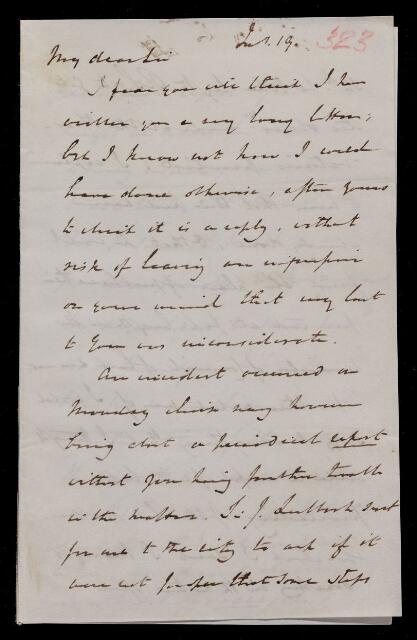 Jul. 19. 323
My dear Sir
I fear you will think I have
written you a very long letter;
but I know not how I could
have done otherwise, after yours
to which it is a reply, without
risk of leaving an impression
on your mind that my last
to you was inconsiderate.
An incident occurred on
Monday which may however
bring about a periodical report
without you having further trouble
in the matter. Sir J. Lubbock sent
for me to the city to ask if it
were not proper that some steps